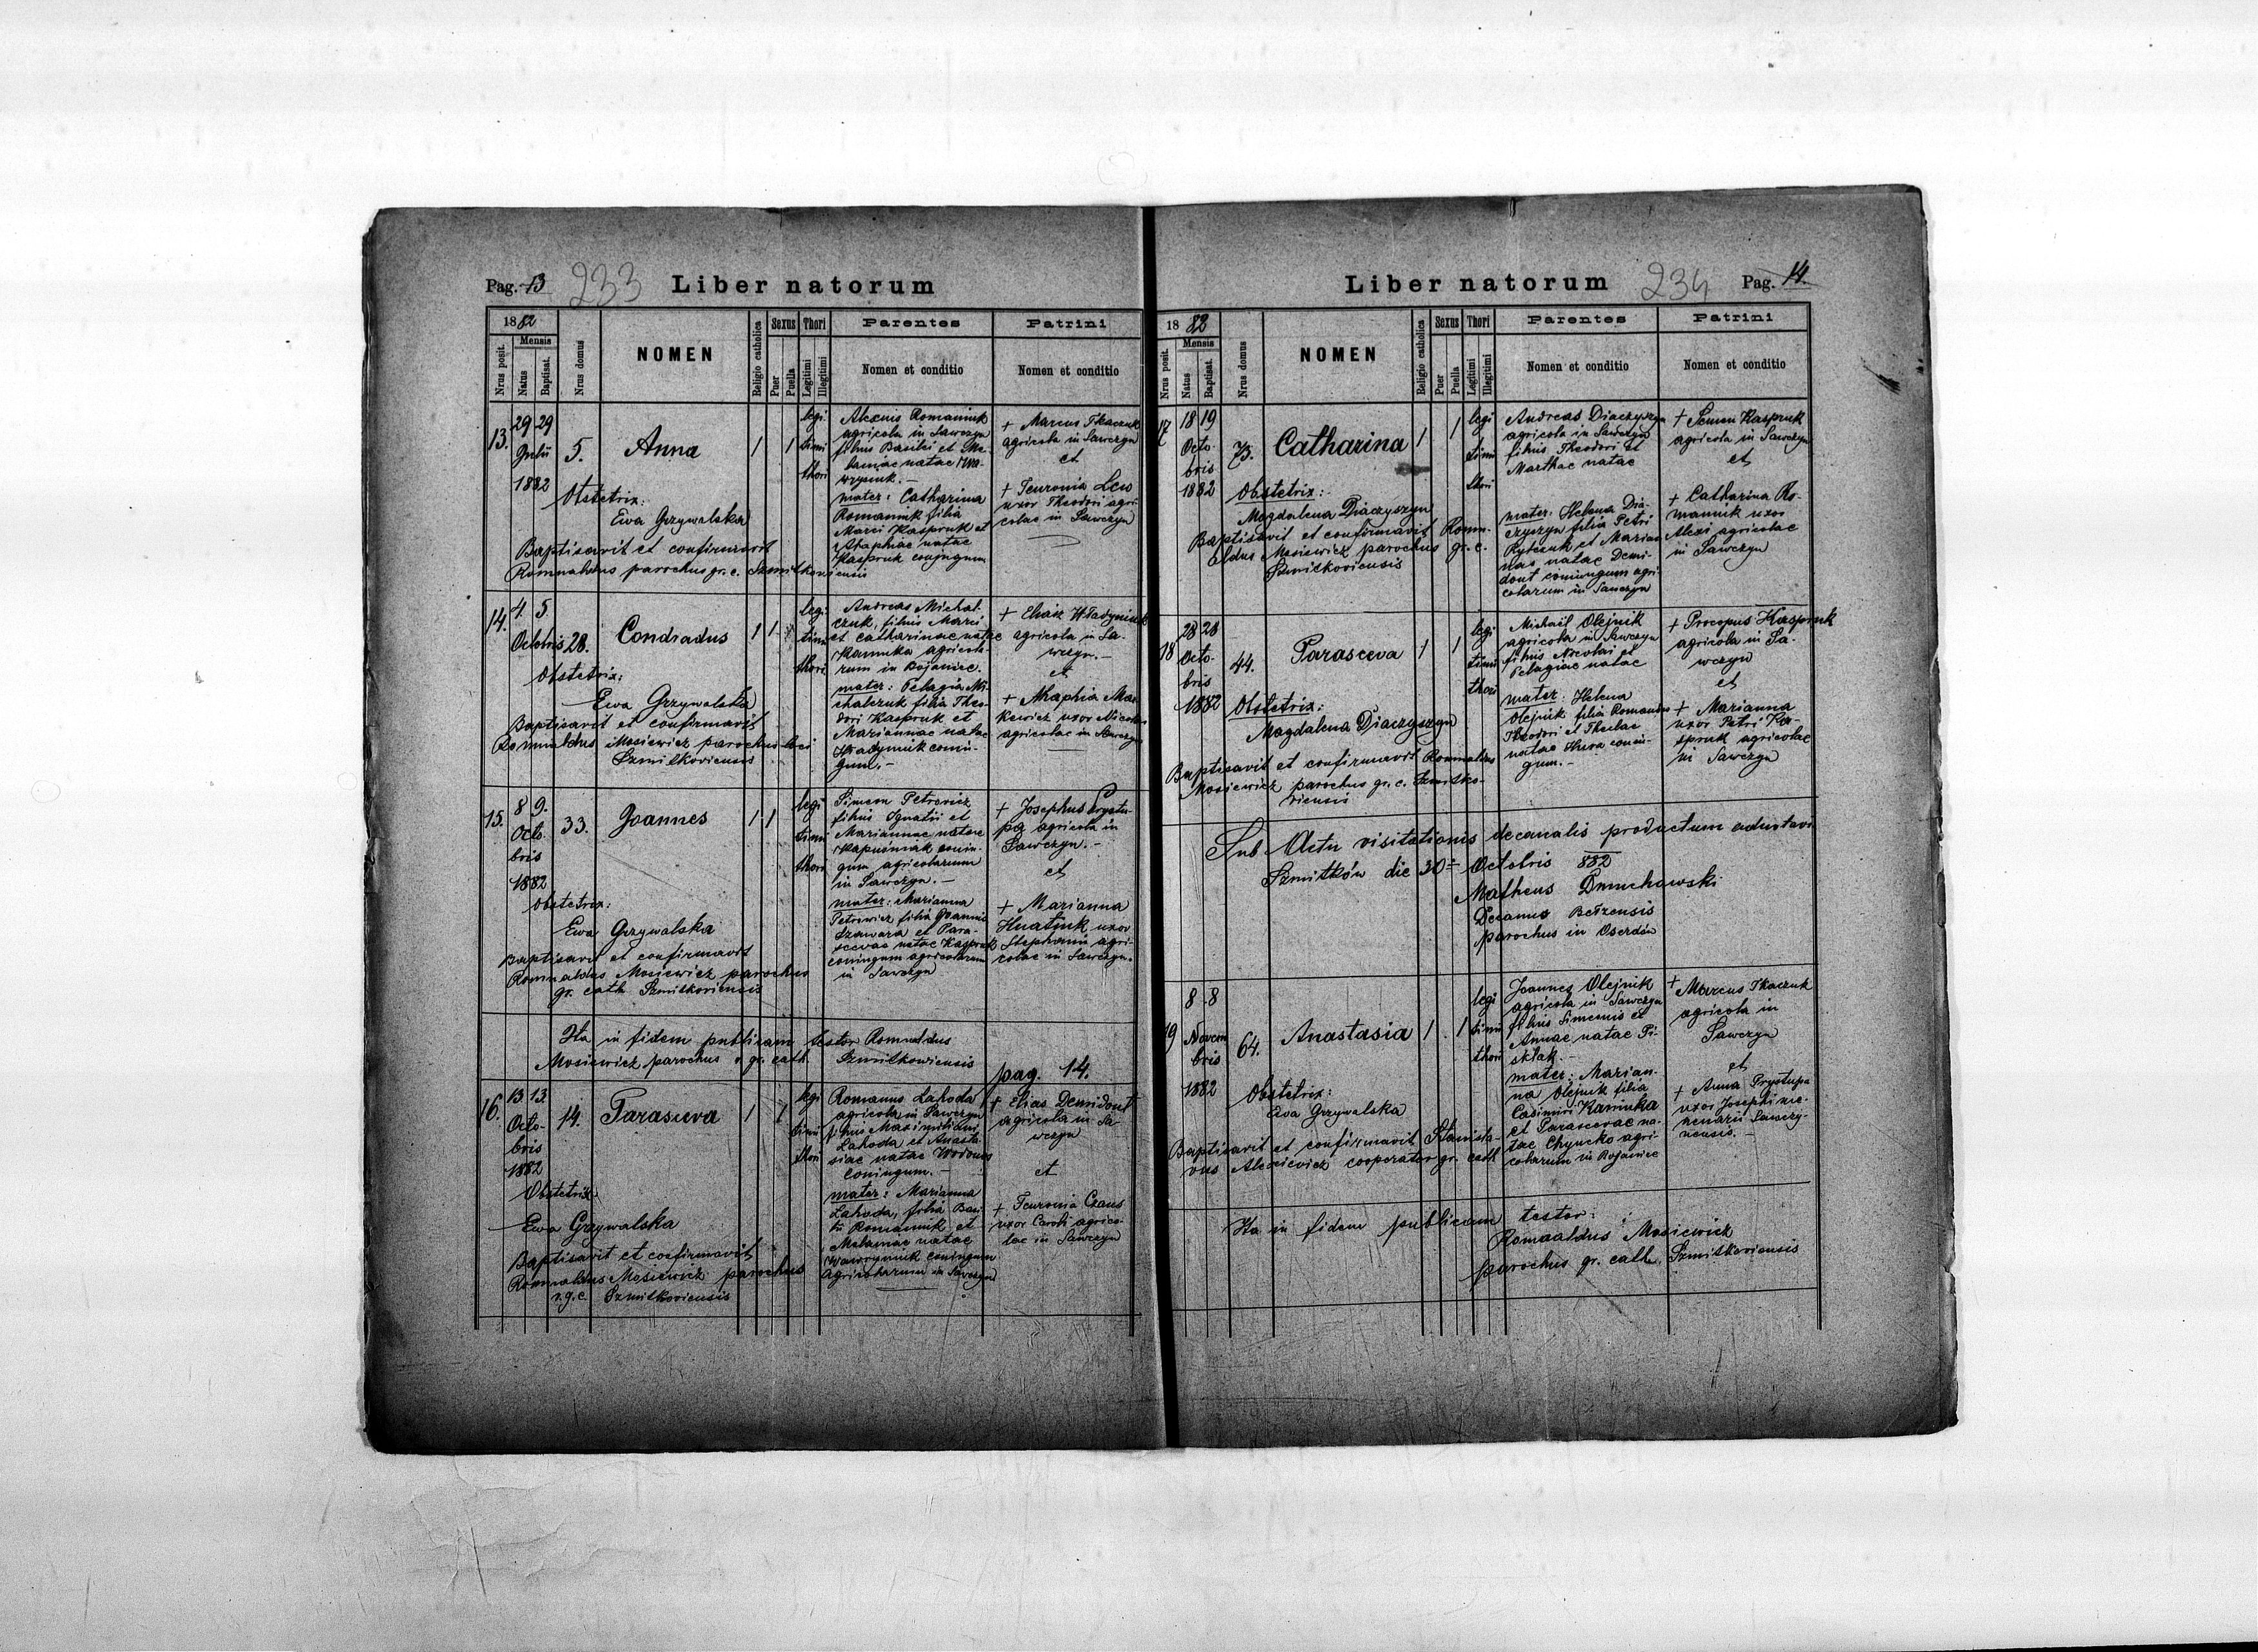 Pag. 13 233 Liber natorum
1882
Mensis
Nrus posit.
Natus
Baptisat.
Nrus domus
NOMEN
Religio catholica
Sexus
Puer
Puella
Thori
Legitimi
Illegitimi
Parentes
Nomen et conditio
Patrini
Nomen et conditio
13.
29 29
Julii
1882
5.
Anna
1 1
legi
timi
thori
Obstetrix:
Ewa Grzywalska
Baptisavit et confirmavit
Romualdus parochus gr. c. Szmitkoviensis
Alexius Romaniuk
agricola in Sawczyn
filius Basilii et Me-
laniae natae Wa-
wryniuk. -
mater: Catharina
Romaniuk filia
Marci Kaspruk et
Ahaphiae natae
Kaspruk conjugum
+ Marcus Tkaczuk
agricola in Sawczyn
et
+ Teuronia Lew
uxor Theodori agri-
colae in Sawczyn
14.
4. 5
Octobris
28.
Condradus
1 1
legi
timi
thori
Obstetrix:
Ewa Grzywalska
Baptisavit et confirmavit
Romualdus Mosiewicz parochus loci
Szmitkoviensis
Andreas Michal-
czuk, filius Marci
et Catharinae natae
Kamuka agricola-
rum in Bojaniec.
mater: Pelagia Mi-
chalczuk filia Theo-
dori Kaspruk et
Mariannae natae
Wladyniuk coniu-
gum. -
+ Elias Władyniuk
agricola in Sa-
wczyn. -
et
+ Ahaphia Mac-
kewicz uxor Nicolai
agricolae in Sawczyn
15.
8 9.
Octo-
bris
1882
33.
Joannes
1 1
legi
timi
thori
Obstetrix:
Ewa Grzywalska
Baptisavit et confirmavit
Romualdus Mosiewicz parochus
gr. cath. Szmitkoviensis
Simeon Petrowicz
filius Ignatii et
Mariannae natae
Kapuśniak coniu-
gum agricolarum
in Sawczyn. -
mater: Marianna
Petrowicz filia Joannis
Szawara et Para-
scevae natae Kaspruk
coniugum agricolarum
in Sawczyn
+ Josephus Prystu-
pa agricola in
Sawczyn. -
et
+ Marianna
Hnatiuk uxor
Stephani agri-
colae in Sawczyn.
Ita in fidem publicam testor Romualdus
Mosiewicz parochus gr. cath. Szmitkowiensis
pag. 14.
16.
13 13
Octo-
bris
1882
14.
Parasceva
1 1
legi
timi
thori
Obstetrix
Ewa Grzywalska
Baptisavit et confirmavit
Romualdus Mosiewicz parochus
r. g. c. Szmitkoviensis
Romanus Lahoda
agricola in Sawczyn
filius Maximiliani
Lahoda et Anasta-
siae natae Wdowes
coniugum. -
mater: Marianna
Lahoda, filia Basi-
lii Romaniuk et
Melaniae natae
Wawryniuk coniugum
agricolarum in Sawczyn
+ Elias Demidont
agricola in Sa-
wczyn
et
+ Teuronia Czaus
uxor Caroli agrico-
lae in Sawczyn
Liber natorum 234 Pag. 14.
1882
Mensis
Nrus posit.
Natus
Baptisat.
Nrus domus
NOMEN
Religio catholica
Sexus
Puer
Puella
Thori
Legitimi
Illegitimi
Parentes
Nomen et conditio
Patrini
Nomen et conditio
17
18 19
Octo-
bris
1882
73.
Catharina
1 1
legi
timi
thori
Obstetrix:
Magdalena Diaczyszyn
Baptisavit et confirmavit Romu-
aldus Mosiewicz parochus gr. c.
Szmitkoviensis
Andreas Diaczyszyn
agricola in Sawczyn
filius Theodori et
Marthae natae
mater: Helena Dia-
czyszyn filia Petri
Rybczuk et Marian-
nae natae Demi-
dont coniungum agri-
colarum in Sawczyn
+ Semen Kaspruk
agricola in Sawczyn
et
+ Catharina Ro-
maniuk uxor
Alexi agricolae
in Sawczyn
18
28 28
Octo-
bris
1882
44.
Parasceva
1 1
legi
timi
thori
Obstetrix:
Magdalena Diaczyszyn
Baptisavit et confirmavit Romualdus
Mosiewicz parochus gr. c. Szmitko-
viensis
Michaël Olejnik
agricola in Sawczyn
filius Nicolai et
Pelagiae natae
mater: Helena
Olejnik filia Romandus
Theodori et Theclae
natae Hura coniu-
gum. -
+ Procopus Kaspruk
agricola in Sa-
wczyn
et
+ Marianna
uxor Petri Ka-
spruk agricolae
in Sawczyn
Sub Actu visitationis decanalis productum adnotavi
Szmitków die 30 Octobris 882
Matheus Dmuchowski
Decanus Bełzensis
parochus in Oserdów
19
8 8
Novem
bris
1882
64.
Anastasia
1 1
legi
timi
thori
Obstetrix:
Ewa Grzywalska
Baptisavit et confirmavit Stanisla-
vus Alexievicz cooperator gr. cath
Joannes Olejnik
agricola in Sawczyn
filius Simeonis et
Annae natae Pi-
sklak. -
mater: Marian-
na Olejnik filia
Casimiri Kamuka
et Parascevae na-
tae Chyncko agri-
colarum in Bojaniec
+ Marcus Tkaczuk
agricola in
Sawczyn
et
+ Anna Prystupa
uxor Josephi
Sawczy-
nensis. -
Ita in fidem publicam testor:
Romualdus Mosiewicz
parochus gr. cath. Szmitkoviensis